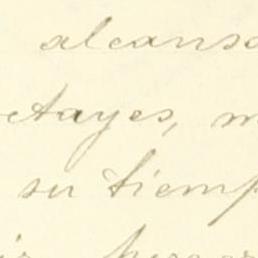 alcanso
ctayes, m
su tiemp